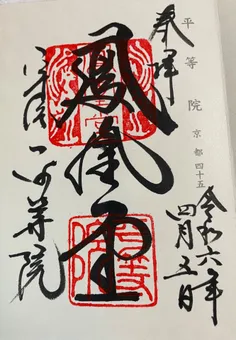 奉拝
平等院 京都四十五
令和六年
四月五日
鳳凰堂
宇治 平等院